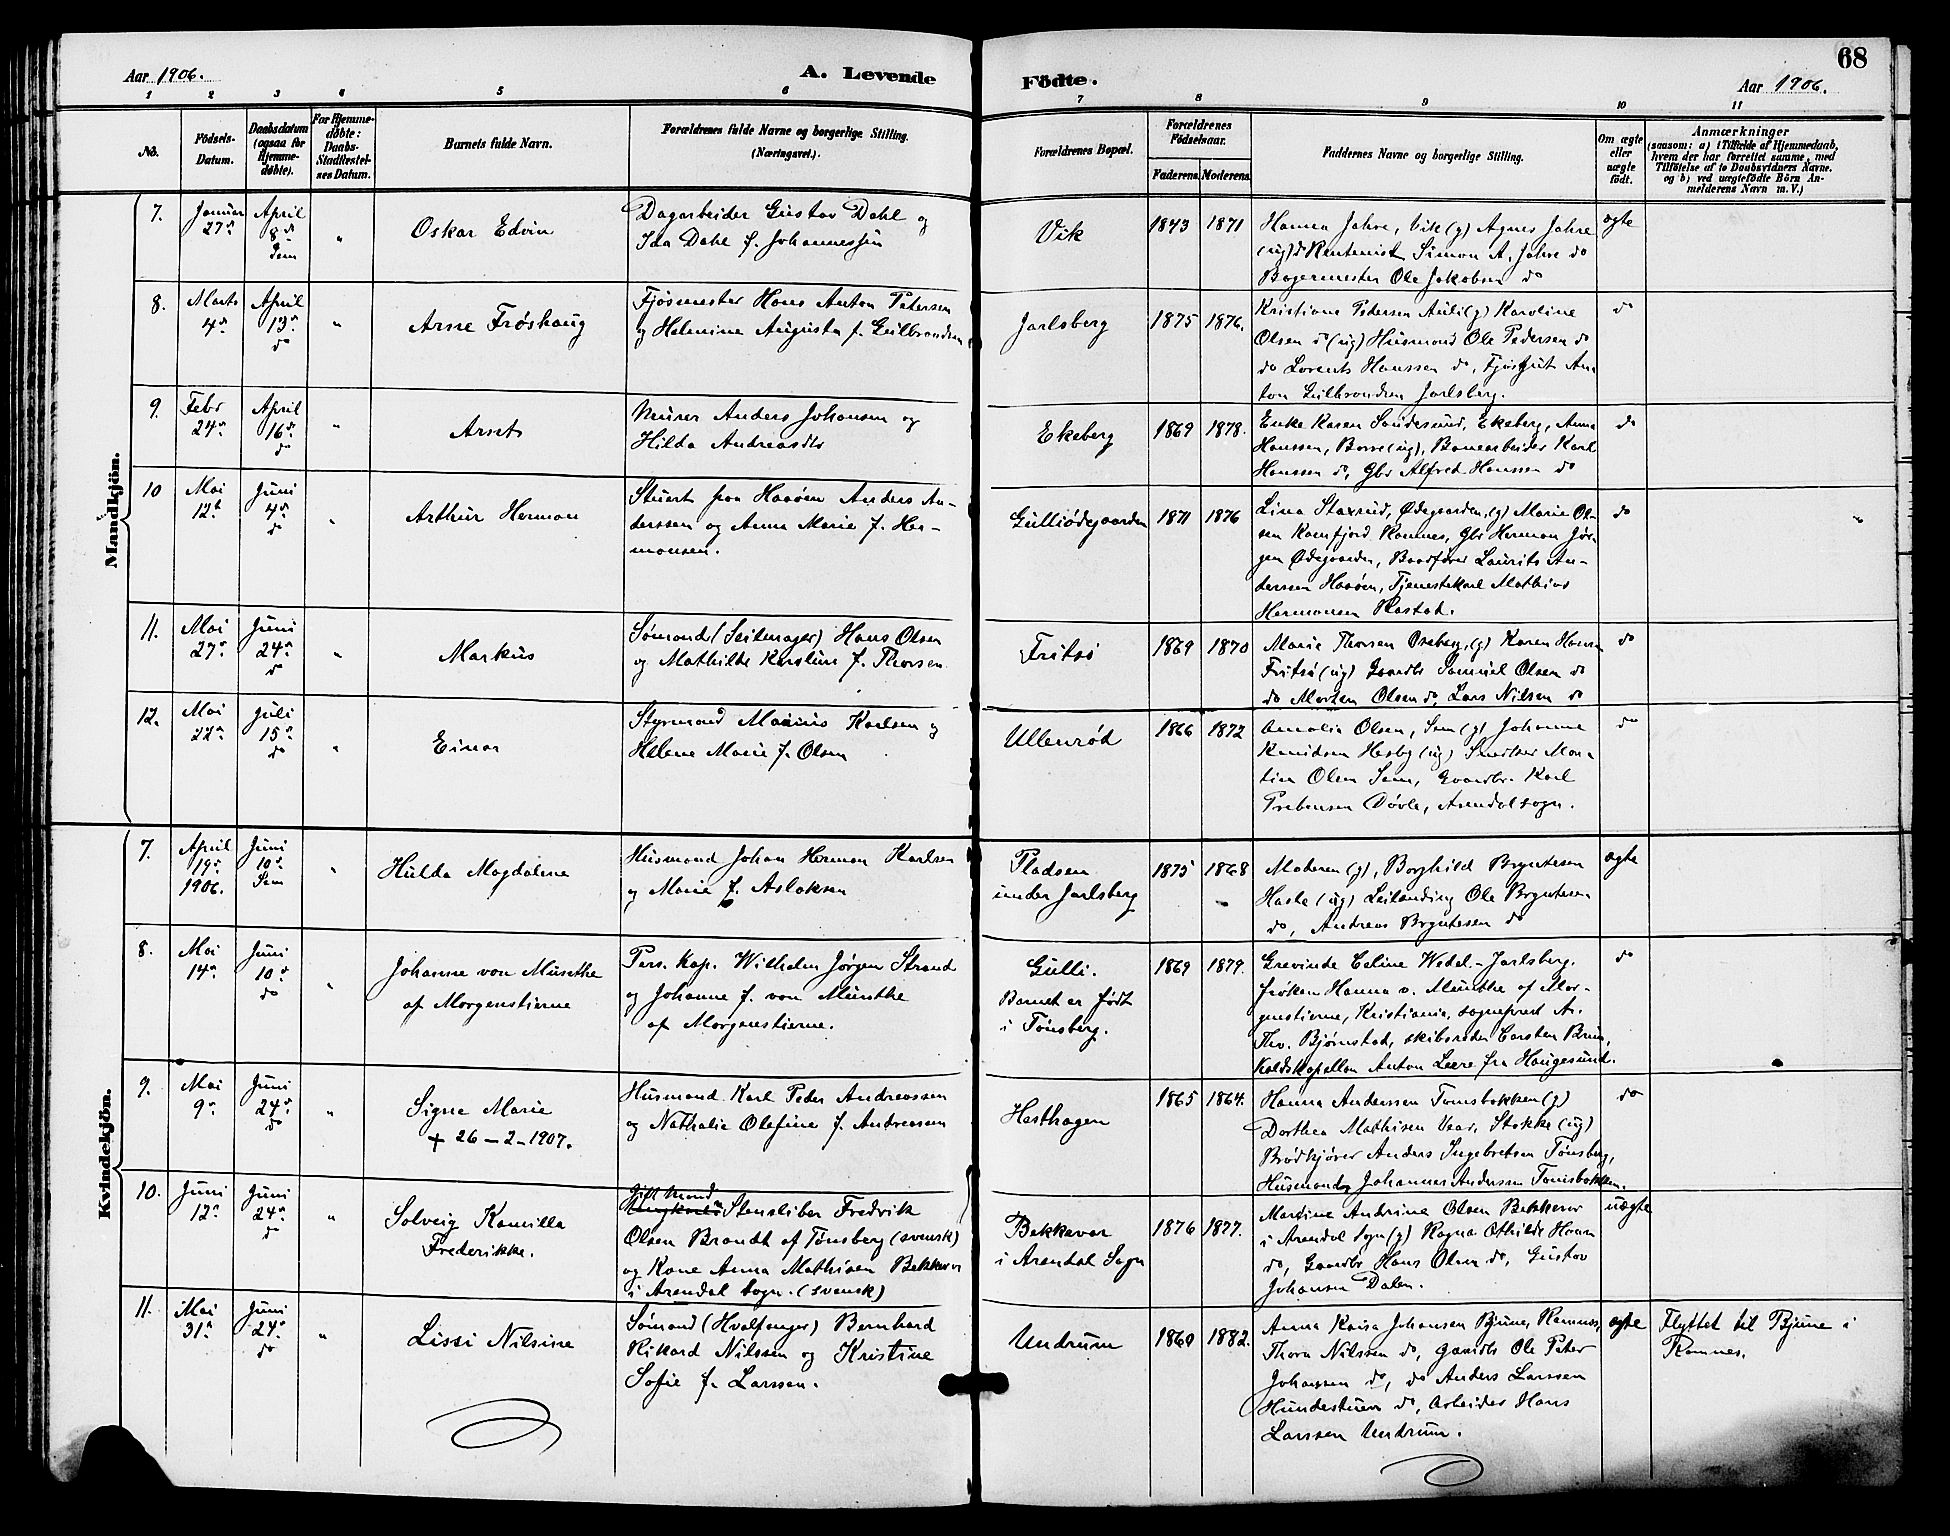 68
Aar 1906.
A. Levende Födte.
Aar 1906.
1 2 3 4 5 6 7 8 9 10 11
No.
Födsels-Datum.
Daabsdatum (ogsaa for Hjemmedøbte).
For Hjemmedøbte: Daabs-Stadfæstelses Datum.
Barnets fulde Navn.
Forældrenes fulde Navne og borgerlige Stilling. (Næringsvei.)
Forældrenes Bopæl.
Forældrenes Födselsaar.
Faderens. Moderens.
Faddernes Navne og borgerlige Stilling.
Om ægte eller uægte födt.
Anmærkninger
(saasom: a) i Tilfælde af Hjemmedaab, hvem der har forrettet samme, med Tilföielse af to Daabsvidners Navne. og b) ved uægtefödte Börn Anmelderens Navn m. V.)
Mandkjön.
7. Januar 27de April 8de Sem "
Oskar Edvin
Dagarbeider Gustav Dahl og
Ida Dahl f. Johannessen
Vik 1843 1871
Hanna Jahre, Vik (g) Agnes Jahre
(ug) do Rentenist Simon A. Jahre do
Bagermester Ole Jakobsen do
ægte
8. Marts 4de April 13de do "
Arne Frøshaug
Fjøsmester Hans Anton Petersen
og Helmine Augusta f. Gulbrandsen
Jarlsberg 1875 1876.
Kristiane Pedersen Auli (g) Karoline
Olsen do (ug) Husmand Ole Pedersen do
do Lorents Hanssen do, Fjøsgut An-
ton Gulbrandsen Jarlsberg.
do
9. Febr 24de April 16de do "
Arnt
Murer Anders Johansen og
Hilda Andreasdtr
Ekeberg 1869 1878.
Enke Karen Sandesund, Ekeberg, Anna
Hanssen, Borre (ug), Banearbeider Karl
Hanssen do, Gbr Alfred Hanssen do
do
10 Mai 12te Juni 4de do "
Arthur Herman
Stuert paa Haaøen Anders An-
derssen og Anna Marie f. Her-
mansen.
Gulliødegaarden 1871 1876
Lina Staxrud, Ødegaarden, (g) Marie Ol-
sen Ramfjord Ramnes, Gbr Herman Jør-
gen Ødegaarden, Baadfører Laurits An-
derssen Haaøen, Tjenestekarl Mathias
Hermansen Rastad.
do
11. Mai 27de Juni 24de do "
Markus
Sømand (Seilmager) Hans Olsen
og Mathilde Karoline f. Thorsen
Fritsø 1869 1870
Marie Thorsen Oseberg, (g) Karen Hansen
Fritsø (ug) Gaardbr Samuel Olsen do
do Morten Olsen do, Lars Nilsen do
do
12. Mai 22de Juli 15de do "
Einar
Styrmand Marius Karlsen og
Helene Marie f. Olsen
Ullenrød 1866 1872
Amalia Olsen, Sem (g) Johanne
Knudsen Hesby (ug) Snedker Mar-
tin Olsen Sem, Gaardbr. Karl
Prebensen Døvle, Arendal sogn.
do
Kvindekjön.
7. April 19de 1906. Juni 10de Sem "
Hulda Magdalene
Husmand Johan Herman Karlsen
og Marie f. Aslaksen
Pladsen
under Jarlsberg
1875 1868
Moderen (g), Borghild Bryntesen
Haske (ug) Leilænding Ole Bryntesen
do, Andreas Bryntesen do
ægte
8. Mai 14de Juni 10de do "
Johanne von Munthe
af Morgenstierne
Pers. Kap. Wilhelm Jørgen Strand
og Johanne f. von Munthe
af Morgenstierne.
Gulli.
Barnet er født
i Tønsberg.
1869 1879.
Grevinde Celine Wedel-Jarlsberg.
Frøken Hanna v. Munthe af Mor-
genstierne, Kristiania, sogneprest A.
Thv. Bjørnstad, skibsreder Carsten Bruun,
Kaldskapellan Anton Leere fra Haugesund.
do
9. Mai 9de Juni 24de do "
Signe Marie
+ 26-2-1907.
Husmand Karl Peder Andreassen
og Nathalie Olefine f. Andreassen
Hesthagen 1865 1864.
Hanna Anderssen Tomsbakken (g)
Dorthea Mathisen Vear, Stokke (ug)
Brødkjører Anders Ingebretsen Tønsberg,
Husmand Johannes Anderssen Tomsbakken.
do
10. Juni 12te Juni 24de do "
Solveig Kamilla
Frederikke.
Gift Mand
Stensliber Fredrik
Olsen Brandt af Tønsberg (svensk)
og Kone Anna Mathisen Bekkevar
i Arendal sogn. (svensk)
Bekkevar
i Arendal Sogn
1876 1877.
Martine Andrine Olsen Bekkevar
i Arendal Sogn (g) Ragna Othilde Hansen
do, Gaardbr Hans Olsen do, Gustav
Johansen Dalen.
uægte
11. Mai 31te Juni 24de do "
Lissi Nilsine
Sømand (Hvalfanger) Bernhard
Rikard Nilssen og Kristine
Sofie f. Larssen.
Undrum 1860 1882.
Anna Kaisa Johansen Bjune, Ramnes,
Thora Nilssen do, Gaardbr Ole Peter
Johansen do, do Anders Larssen
Hundestuen do, Arbeider Hans
Larssen Undrum.
ægte
Flyttet til Bjune i
Ramnes.